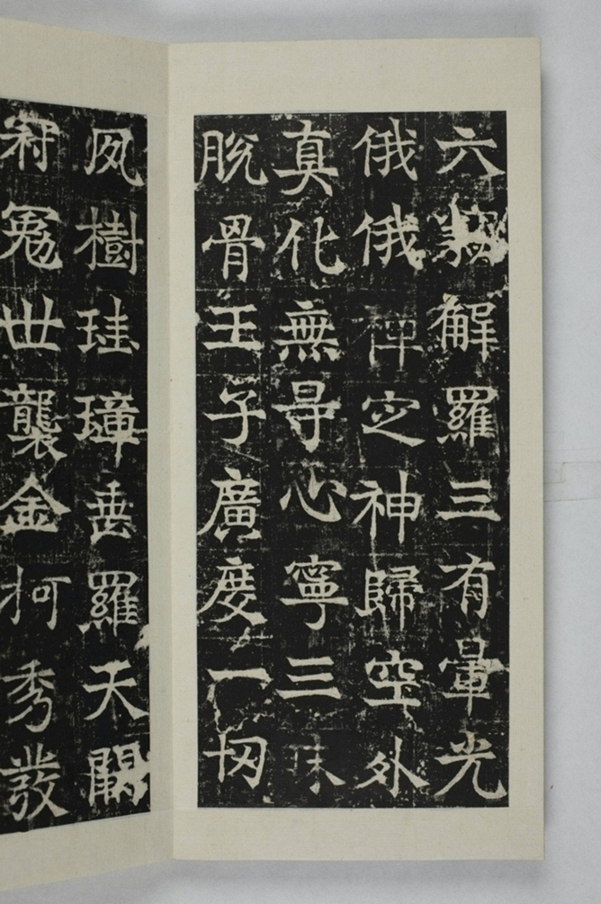 六解羅三有暈光
俄俄禪定神歸空外
真化無尋心寧三昧
脱骨王子廣度一切
夙樹珪璋垂羅天
冠冕世襲金柯秀發